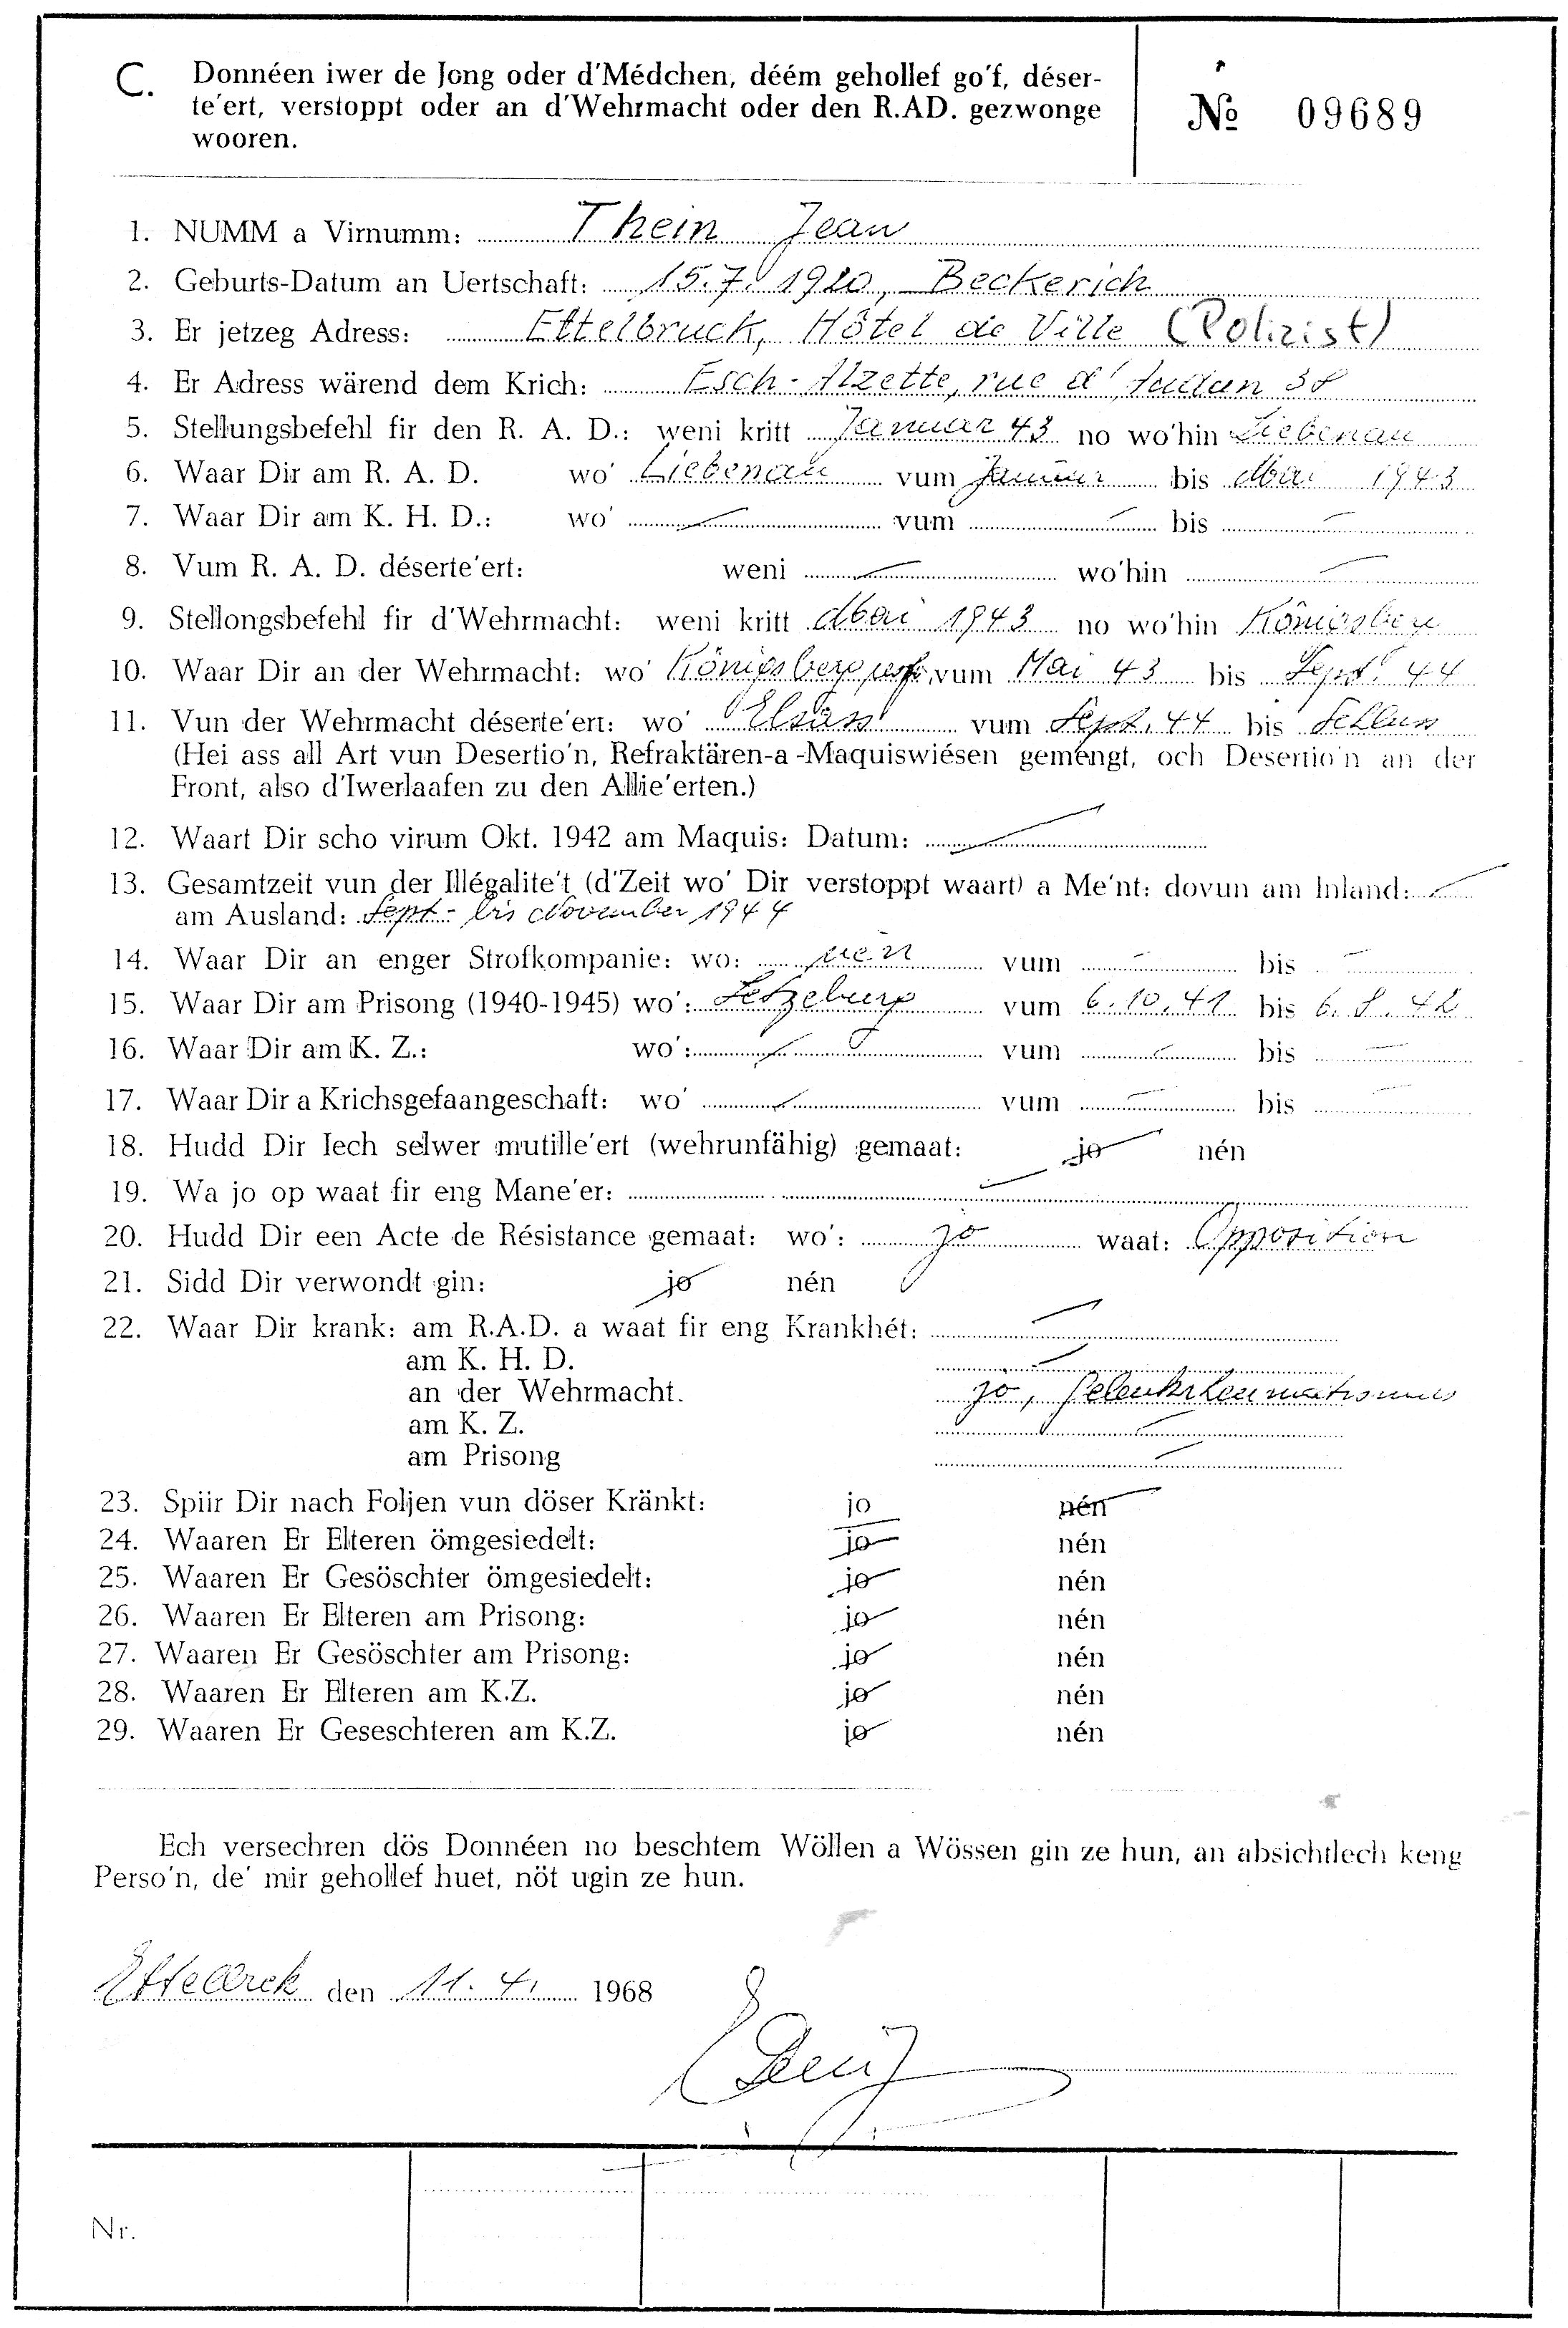 C. Donnéen iwer de Jong oder d'Médchen, déém gehollef go'f, déser-
te'ert, verstoppt oder an d'Wehrmacht oder den R.AD. gezwonge
wooren.
№ 09689
1. NUMM a Virnumm: Thein Jean
2. Geburts-Datum an Uertschaft: 15.7.1920, Beckerich
3. Er jetzeg Adress: Ettelbruck, Hôtel de Ville (Polizist)
4. Er Adress wärend dem Krich: Esch-Alzette, rue d'Audun 38
5. Stellungsbefehl fir den R. A. D.: weni kritt Januar 43 no wo'hin Liebenau
6. Waar Dir am R. A. D. wo' Liebenau vum Januar bis Mai 1943
7. Waar Dir am K. H. D.: wo' — vum — bis —
8. Vum R. A. D. déserte'ert: weni — wo'hin —
9. Stellongsbefehl fir d'Wehrmacht: weni kritt Mai 1943 no wo'hin Königsberg
10. Waar Dir an der Wehrmacht: wo' Königsberg usf. vum Mai 43 bis Sept. 44
11. Vun der Wehrmacht déserte'ert: wo' Elsass vum Sept. 44 bis Schluss
(Hei ass all Art vun Desertio'n, Refraktären-a-Maquiswiésen geméngt, och Desertio'n an der
Front, also d'Iwerlaafen zu den Allie'erten.)
12. Waart Dir scho virum Okt. 1942 am Maquis: Datum: —
13. Gesamtzeit vun der Illégalite't (d'Zeit wo' Dir verstoppt waart) a Me'nt: dovun am Inland: —
am Ausland: Sept - bis November 1944
14. Waar Dir an enger Strofkompanie: wo: nén vum — bis —
15. Waar Dir am Prisong (1940-1945) wo': Letzeburg vum 6.10.41 bis 6.8.42
16. Waar Dir am K. Z.: wo': — vum — bis —
17. Waar Dir a Krichsgefaangeschaft: wo' — vum — bis —
18. Hudd Dir Iech selwer mutille'ert (wehrunfähig) gemaat: jo nén
19. Wa jo op waat fir eng Mane'er: —
20. Hudd Dir een Acte de Résistance gemaat: wo': jo waat: Opposition
21. Sidd Dir verwondt gin: jo nén
22. Waar Dir krank: am R.A.D. a waat fir eng Krankhét: —
am K. H. D. —
an der Wehrmacht. jo, Gelenkrheumatismus
am K. Z. —
am Prisong —
23. Spiir Dir nach Foljen vun döser Kränkt: jo nén
24. Waaren Er Elteren ömgesiedelt: jo nén
25. Waaren Er Gesöschter ömgesiedelt: jo nén
26. Waaren Er Elteren am Prisong: jo nén
27. Waaren Er Gesöschter am Prisong: jo nén
28. Waaren Er Elteren am K.Z. jo nén
29. Waaren Er Geseschteren am K.Z. jo nén
Ech versechren dös Donnéen no beschtem Wöllen a Wössen gin ze hun, an absichtlech keng
Perso'n, de' mir gehollef huet, nöt ugin ze hun.
den 11.4. 1968
Nr.